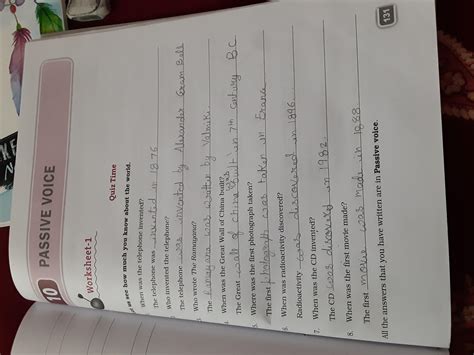 10 PASSIVE VOICE
Worksheet-1
Quiz Time
see how much you know about the world.
When was the telephone invented?
The telephone was invented in 1876
Who invented the telephone?
The telephone was invented by Alexander Gram Bell
Who wrote The Ramayana?
The was by Valmiki
When was the Great Wall of China built?
The Great wall of China was built in 7th century B.C
Where was the first photograph taken?
The first photograph was taken in
6. When was radioactivity discovered?
Radioactivity was discovered in 1896
7. When was the CD invented?
The CD was in 1982
8. When was the first movie made?
The first movie was made in 1888
All the answers that you have written are in Passive voice.
131